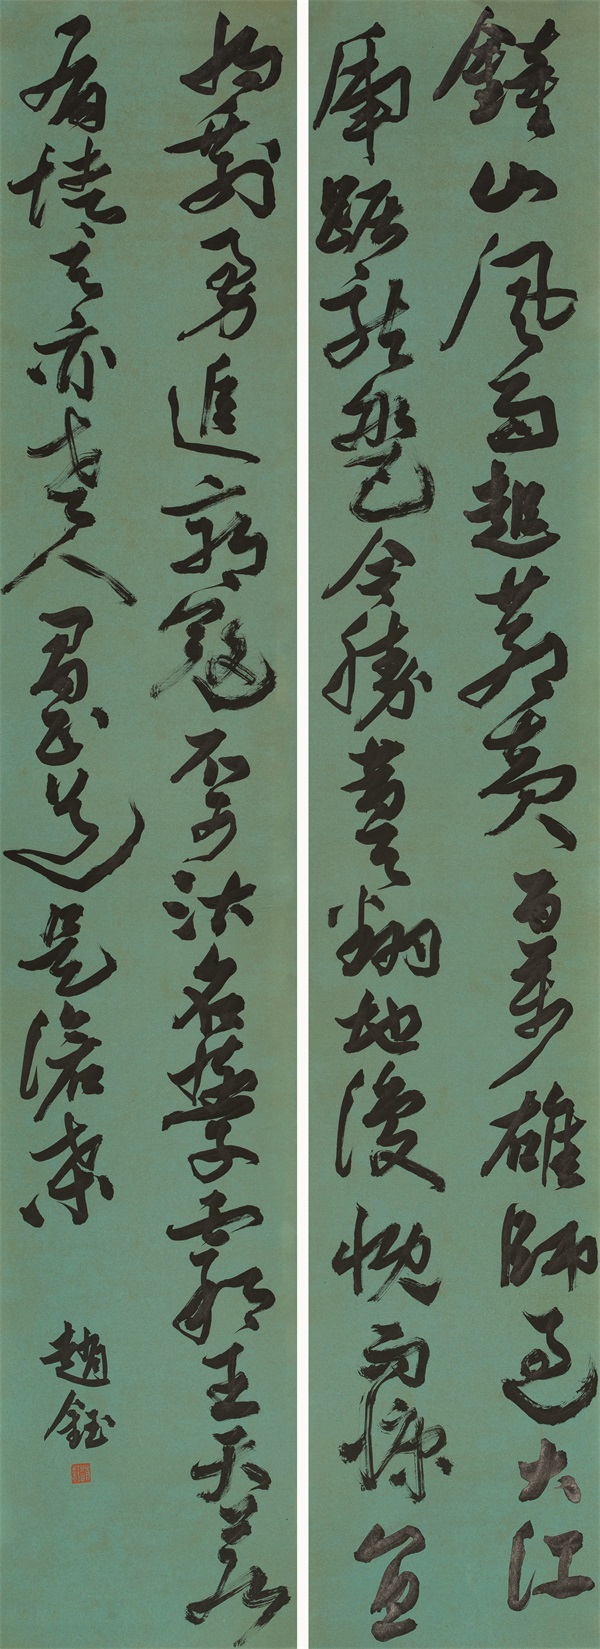 鍾山風雨起蒼黃百萬雄師過大江
虎踞龍盤今勝昔天翻地覆慨而慷宜
將剩勇追窮寇不可沽名學霸王天若
有情天亦老人間正道是滄桑
趙鈺